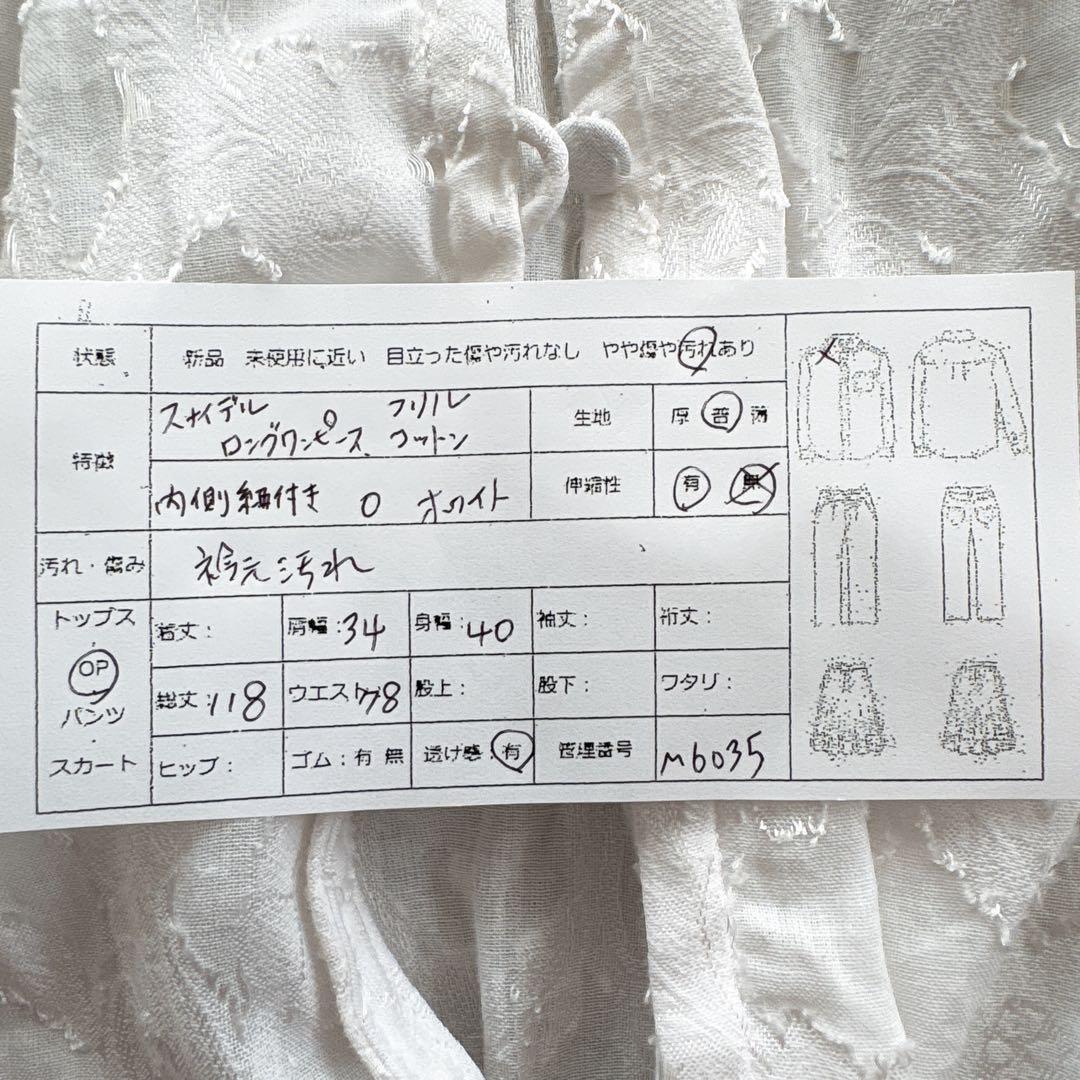 状態 新品 未使用に近い 目立った傷や汚れなし やや傷や汚れあり
特徴 スナイデル フリル
ロングワンピース、コットン
生地 厚 普 薄
内側紐付き 0 ホワイト
伸縮性 有 無
汚れ・傷み 襟元汚れ
トップス
OP
パンツ
スカート
着丈: 肩幅:34 身幅:40 袖丈: 裄丈:
総丈:118 ウエスト78 股上: 股下: ワタリ:
ヒップ: ゴム:有 無 透け感:有 管理番号 M6035